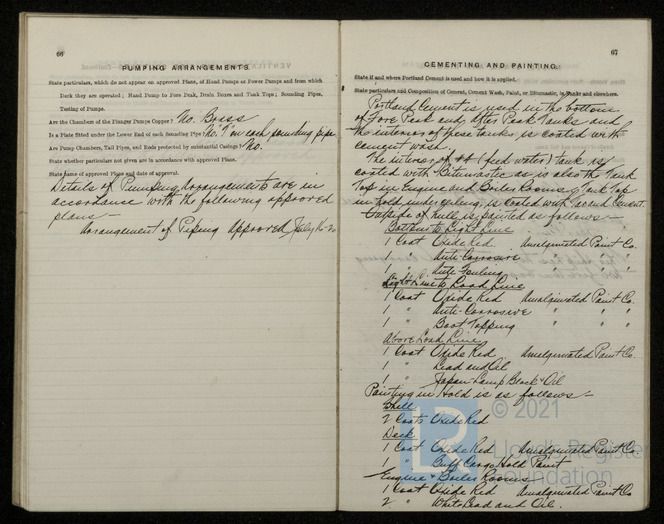 66
PUMPING ARRANGEMENTS.
State particulars, which do not appear on approved Plans, of Hand Pumps or Power Pumps and from which
Deck they are operated; Hand Pump to Fore Peak, Drain Doors and Tank Tops; Sounding Pipes,
Testing of Pumps.
Are the Chambers of the Plunger Pumps Copper? No. Brass
Is a Plate fitted under the Lower End of each Sounding Pipe? No. on each sounding pipe
Are Pump Chambers, Tail Pipes, and Rods protected by substantial Casings? No.
State whether particulars not given are in accordance with approved Plans.
State name of approved Plans and date of approval.
Details of Pumping Arrangements are in
accordance with the following approved
plans:—
Arrangement of Piping Approved July 16-20
67
CEMENTING AND PAINTING.
State if and where Portland Cement is used and how it is applied.
State particulars and Composition of Cement, Cement Wash, Paint, or Bitumastic, in Tanks and elsewhere.
Portland Cement is used in the bottom
of Fore Peak and After Peak Tanks and
the interior of these tanks is coated with
cement wash.
The interior of (feed water) tank is
coated with Bitumastic as is also the Tank
Top in Engine and Boiler Rooms & Tank Top
in hold under ceiling is coated with Tar and Cement.
Outside of hull is painted as follows:—
Bottom to Light Line
1 Coat Oxide Red Amalgamated Paint Co.
1 " Anti-Corrosive " " "
1 " Anti-Fouling " " "
Light Line to Load Line
1 Coat Oxide Red Amalgamated Paint Co.
1 " Anti-Corrosive " " "
1 " Boot Topping " " "
Above Load Line
1 Coat Oxide Red Amalgamated Paint Co.
1 " Lead and Oil
1 " Japan Lamp Black & Oil
Painting in Hold is as follows:—
Shell
2 Coats Oxide Red
Deck
1 Coat Oxide Red Amalgamated Paint Co.
1 " Buff Cargo Hold Paint
Engine & Boiler Rooms
1 Coat Oxide Red Amalgamated Paint Co
2 " White Lead and Oil.
LR © 2021
Lloyd's Register
Foundation